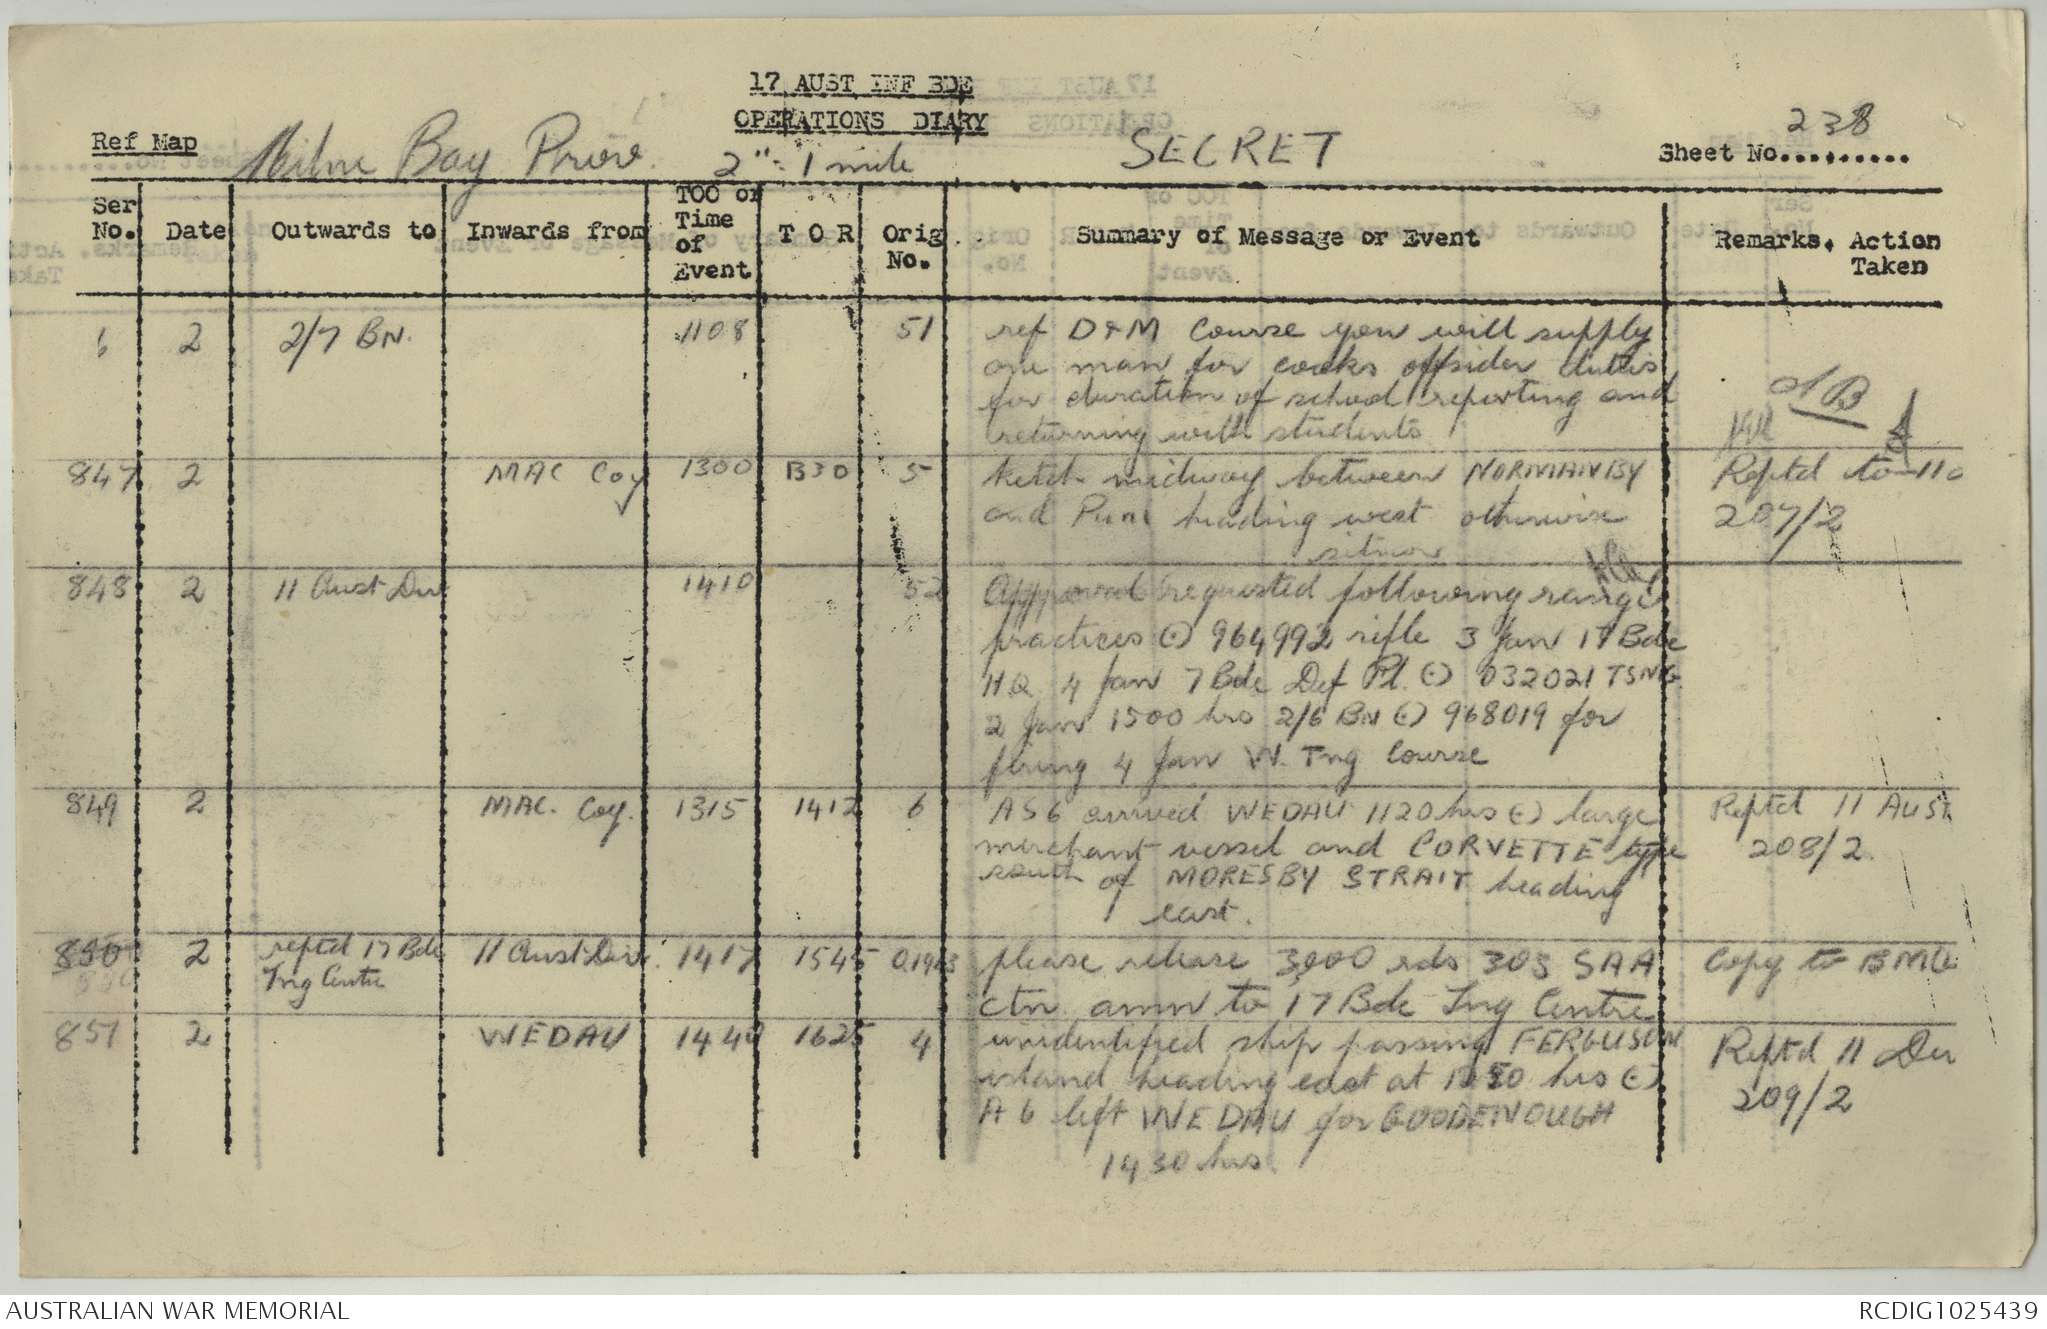 17 AUST INF BDE
OPERATIONS DIARY
Ref Map
Milne Bay Prov. 2" = 1 mile
SECRET
238
Sheet No..........
Ser No. Date Outwards to Inwards from TOO or Time of Event T O R Orig No. Summary of Message or Event Remarks, Action Taken
6 2 2/7 BN. 1108 51 ref D & M Course you will supply
one man for cooks offsider duties
for duration of school reporting and
returning with students
847 2 MAC Coy 1300 1330 5 ketch midway between NORMANBY Reptd to 11
and heading west otherwise 207/2
sitnor
848 2 11 Aust Div 1410 52 Approval requested following range
practices (-) 964992 rifle 3 Jan 17 Bde
HQ 4 Jan 7 Bde Def Pl. (-) 032021 TSMG
2 Jan 1500 hrs 2/6 BN (-) 968019 for
firing 4 Jan W. Tng Course
849 2 MAC. Coy. 1315 1412 6 AS6 arrived WEDAU 1120 hrs (-) large Reptd 11 AUST
merchant vessel and CORVETTE type 208/2.
south of MORESBY STRAIT heading
east.
850 2 reptd 17 Bde 11 Aust Div. 1417 1545 01963 please release 3,000 rds 303 SAA Copy to BMG
Tng Centre ctn amn to 17 Bde Tng Centre
851 2 WEDAU 1440 1625 4 unidentified ship passing FERGUSON Reptd 11 Div
island heading east at hrs (-) 209/2
A 6 left WEDAU for GOODENOUGH
1430 hrs.
AUSTRALIAN WAR MEMORIAL
RCDIG1025439